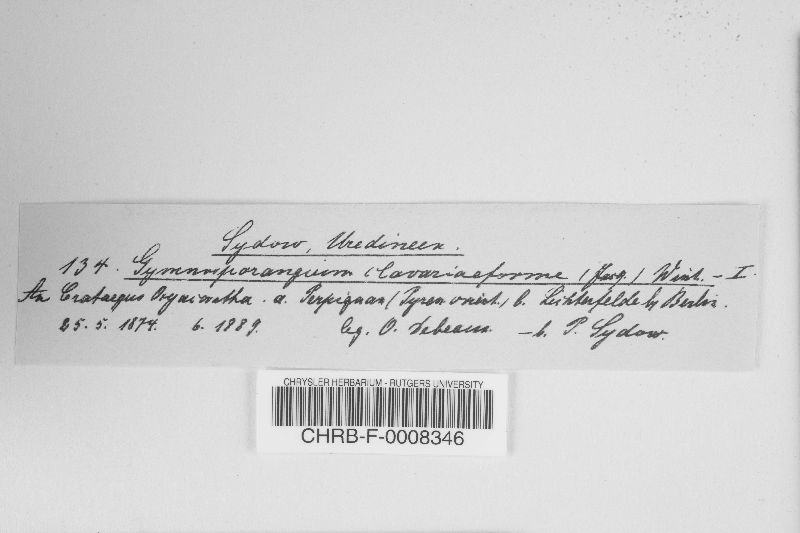 Sydow, Uredineen.
134. Gymnosporangium clavariaeforme (Jacq.) Wint. – I.
An Crataegus Oxyacantha. a. Perpignan (Pyren. orient.) b. Lichterfelde b/ Berlin.
25. 5. 1874. 6. 1889. leg. O. Debeaux. – b. P. Sydow.
CHRYSLER HERBARIUM - RUTGERS UNIVERSITY
CHRB-F-0008346